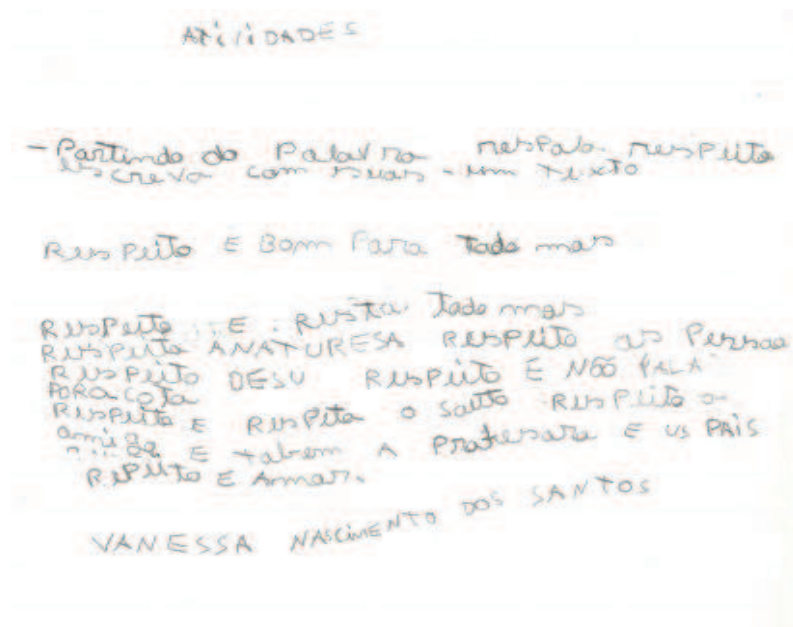 ATILIDADES
- Partindo do Palavra respala respeito
escreva com suas - um texto
Respeito E Bom Para Tado mas
Respeito E Tado mas
Respeito ANATURESA Respeito as Pessoa
Respeito DESU Respeito E NÃO FALA
Respeito E Respeita o Respeito o
amigo E tabem A Profesara E us PAIS
E Amar.
VANESSA NASCIMENTO DOS SANTOS